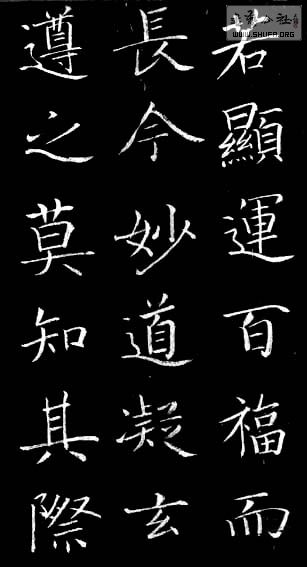 若顯運百福而
長今妙道凝玄
遵之莫知其際
WWW.SHUFA.ORG